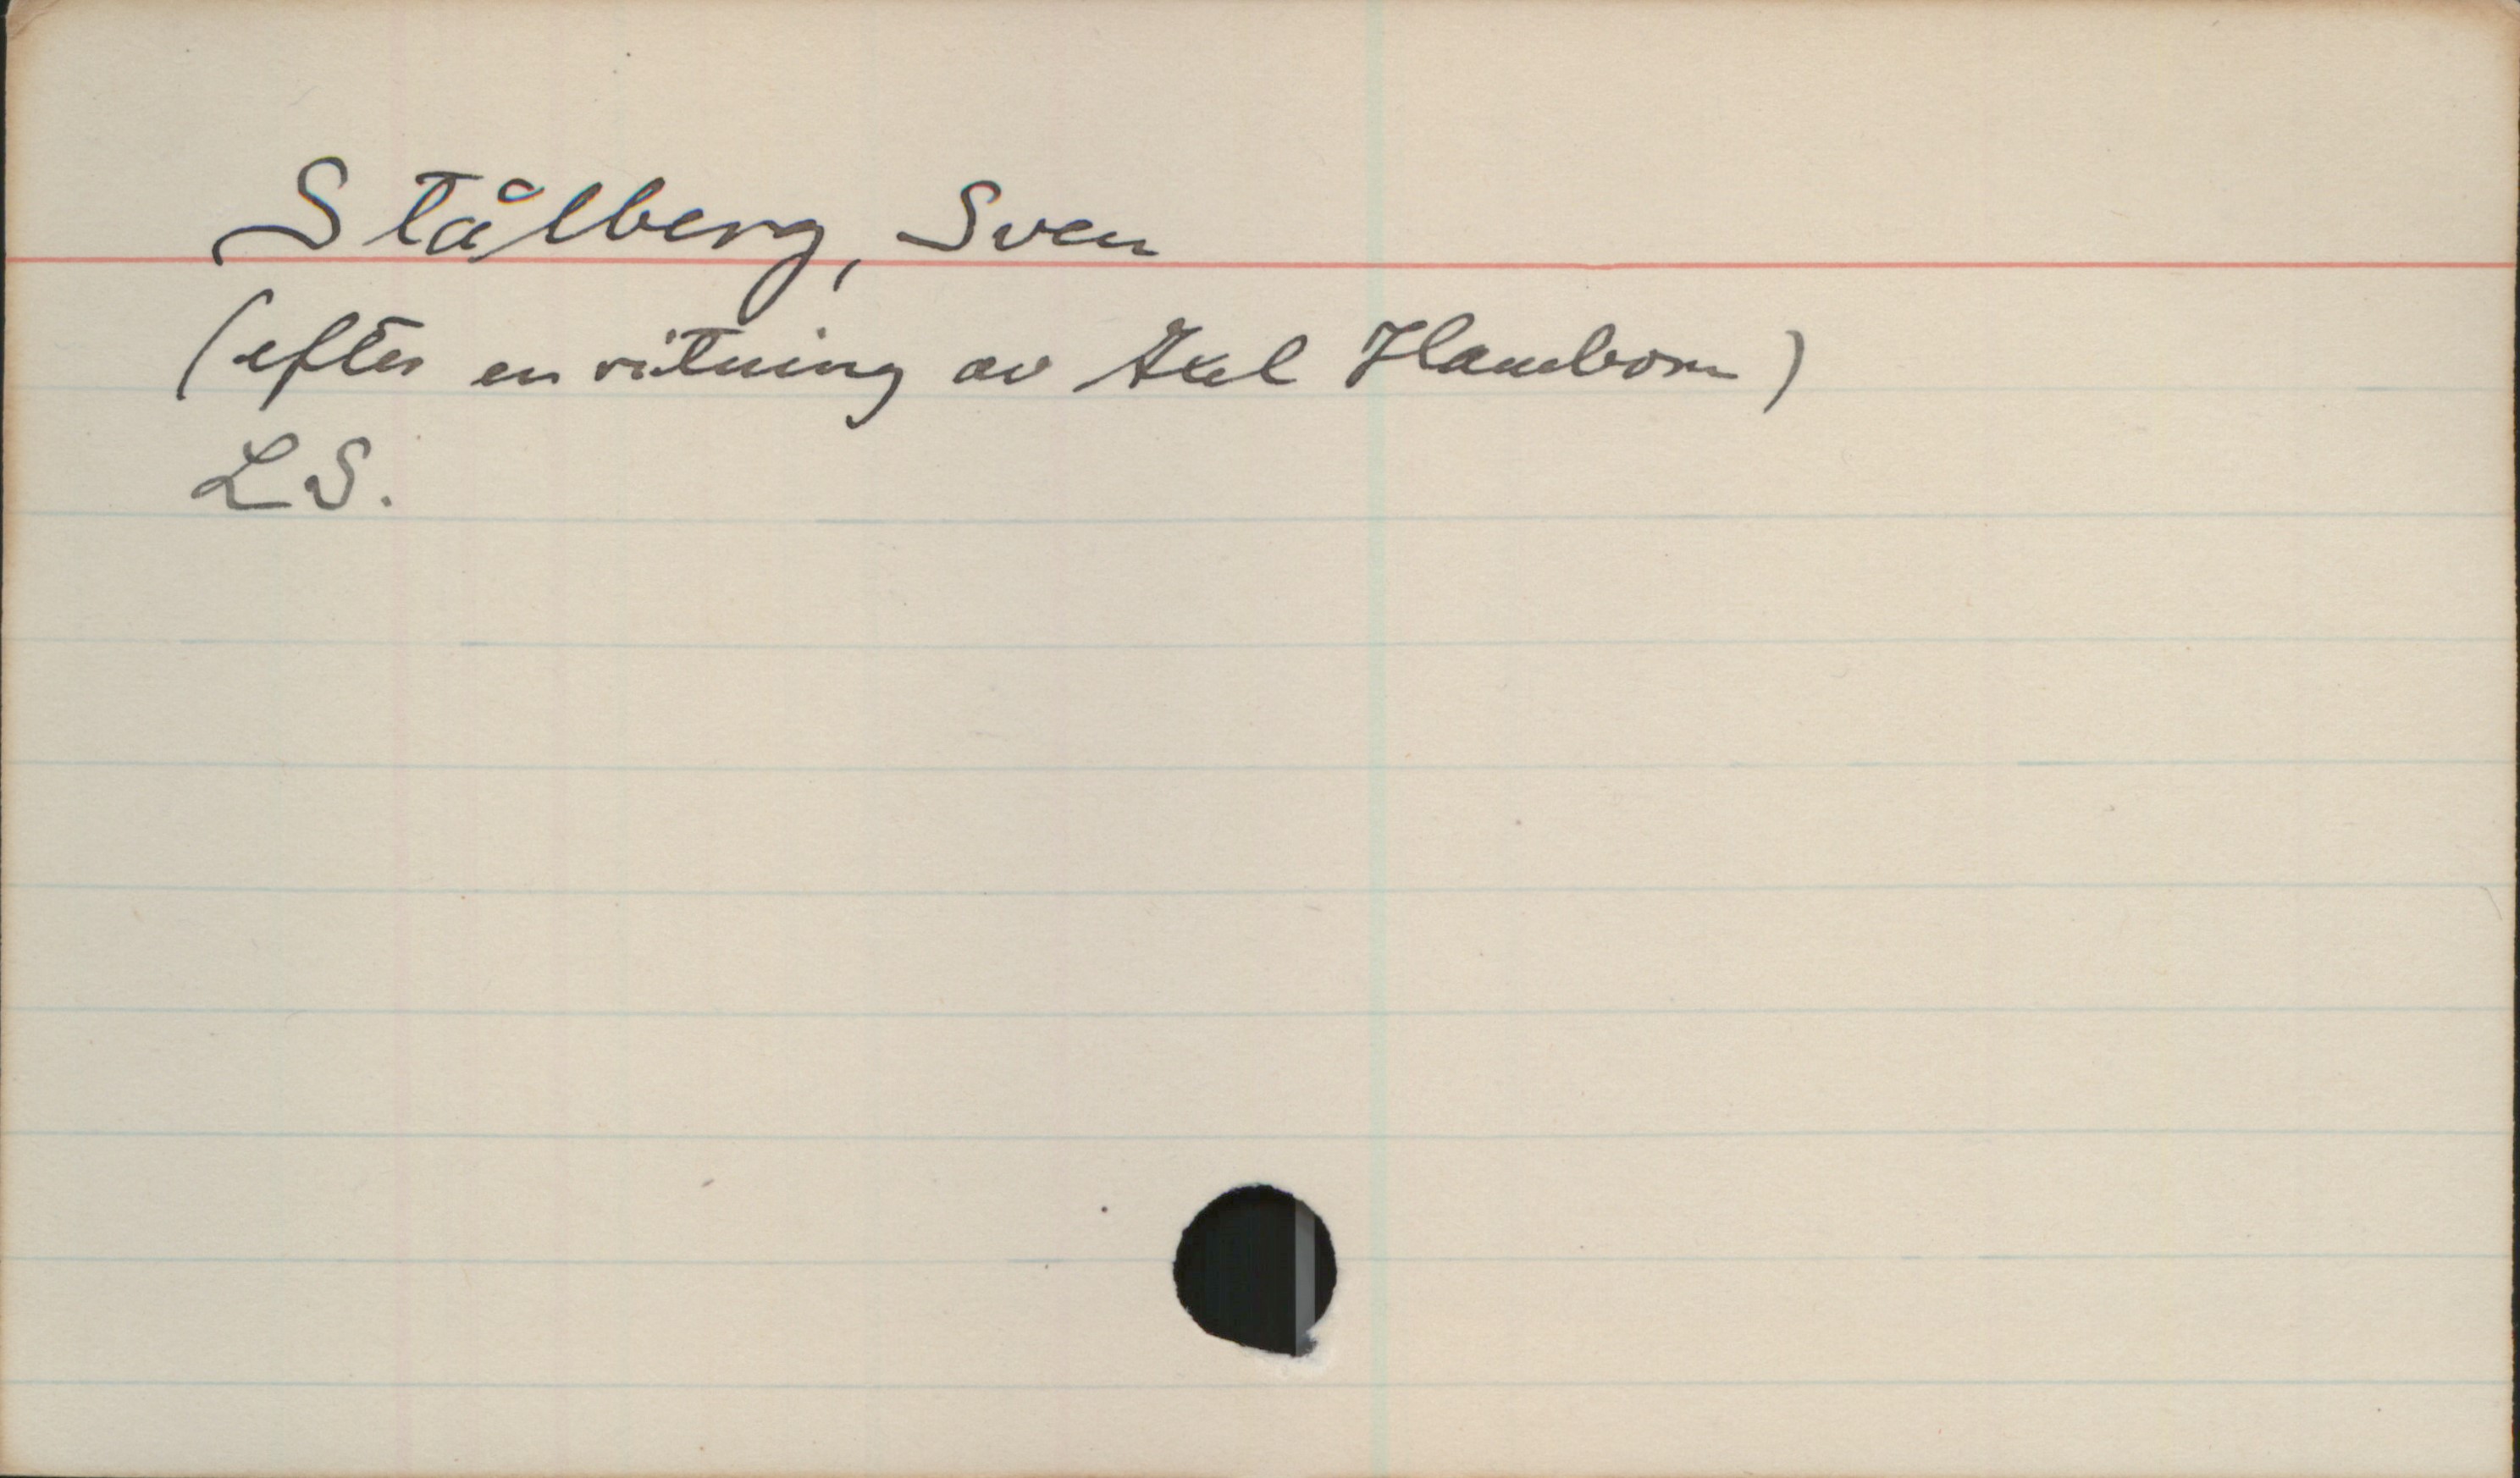 Stålberg, Sven
(efter en ritning av Axel Hambom)
LS.